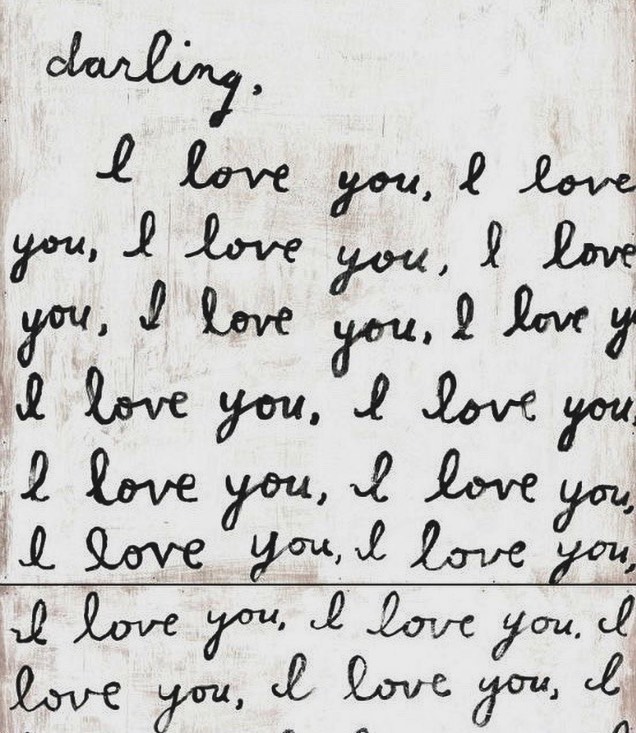 darling,
I love you, I love
you, I love you, I love
you, I love you, I love y
I love you, I love you,
I love you, I love you,
I love you, I love you,
I love you, I love you, I
love you, I love you, I